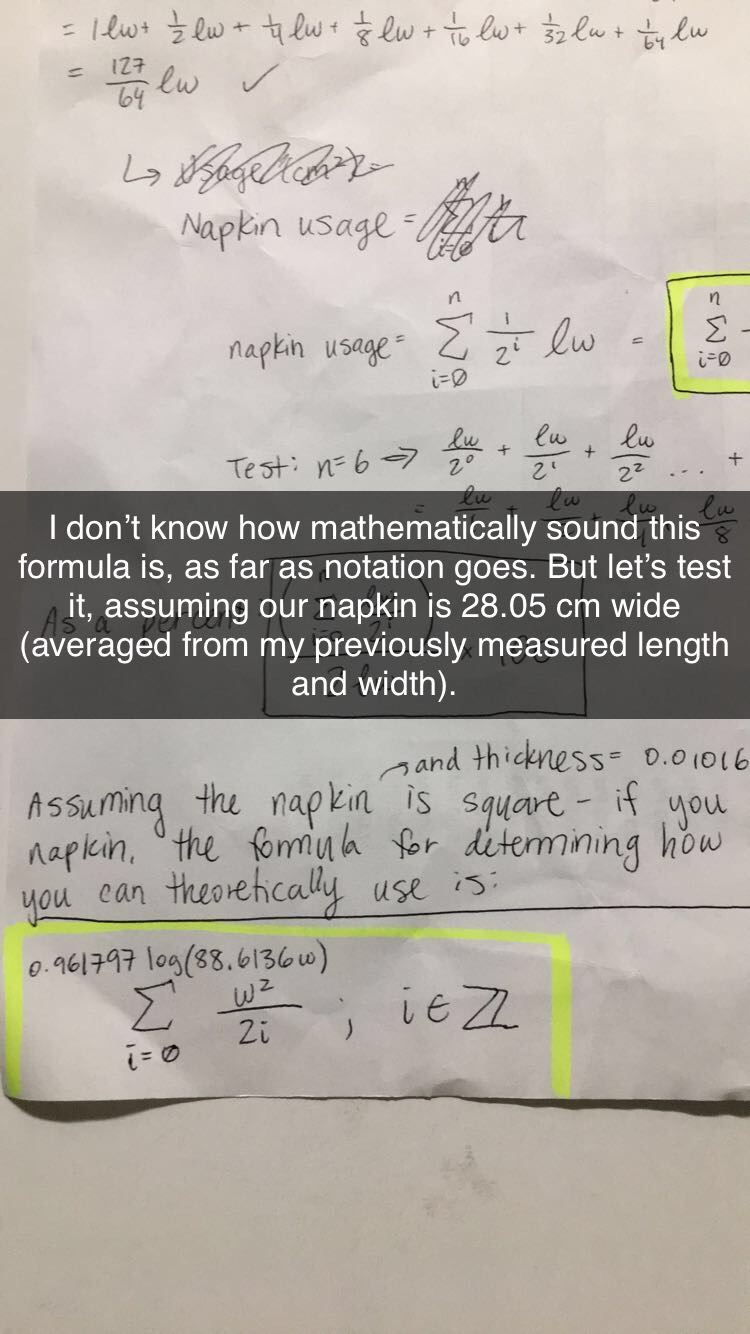 = 1lw + 1/2 lw + 1/4 lw + 1/8 lw + 1/16 lw + 1/32 lw + 1/64 lw
= 127/64 lw ✓
↳
Napkin usage =
napkin usage = n Σ i=0 1/2^i lw = n Σ i=0
Test: n=6 ⇒ lw/2^0 + lw/2^1 + lw/2^2 ... +
= lw + lw + lw lw/8
I don’t know how mathematically sound this
formula is, as far as notation goes. But let’s test
it, assuming our napkin is 28.05 cm wide
(averaged from my previously measured length
and width).
As a percent
→ and thickness = 0.01016
Assuming the napkin is square - if you
napkin, the formula for determining how
you can theoretically use is:
0.961797 log(88.6136w)
Σ w²/2i ; i ∈ ℤ
i=0